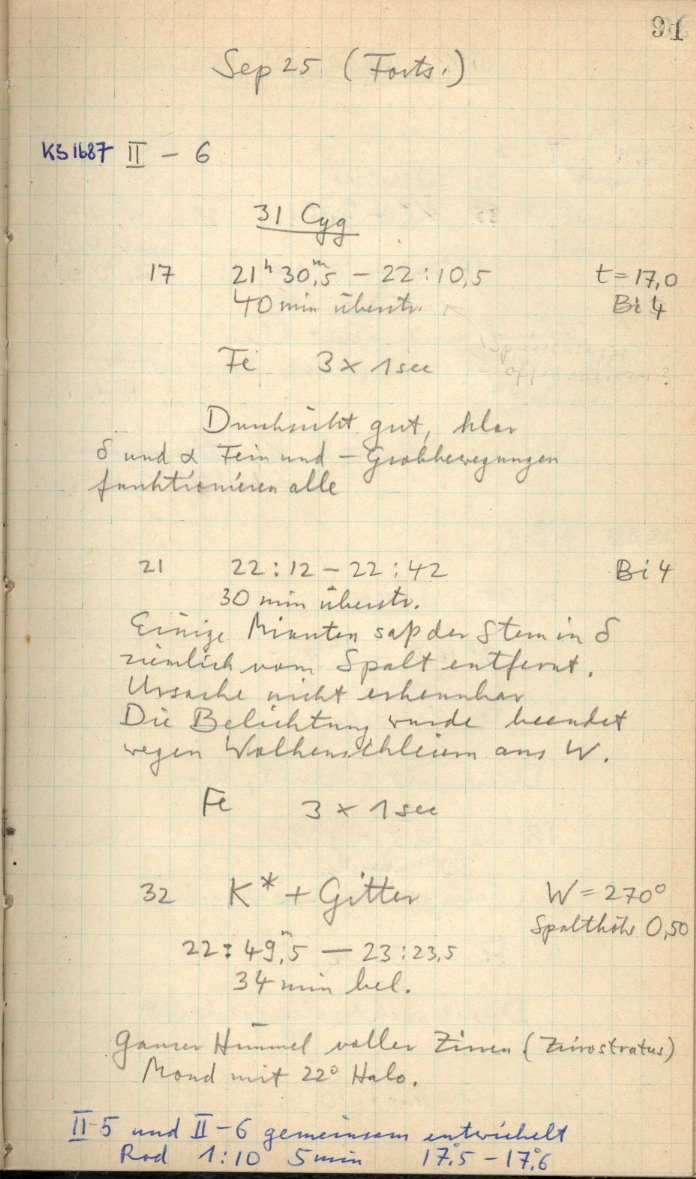 91
Sep 25 (Forts.)
KS1687 II – 6
31 Cyg
17 21ʰ30,ᵐ5 – 22:10,5 t=17,0
40 min überstr. Bi 4
Fe 3 × 1 sec
Durchsicht gut, klar
δ und α Fein und – Grobbewegungen
funktionieren alle
21 22:12 – 22:42 Bi 4
30 min überstr.
Einige Minuten saß der Stern in δ
ziemlich vom Spalt entfernt.
Ursache nicht erkennbar
Die Belichtung wurde beendet
wegen Wolkenschleiern aus W.
Fe 3 × 1 sec
32 K* + Gitter W = 270°
Spalthöhe 0,50
22:49,ᵐ5 — 23:23,5
34 min bel.
Ganzer Himmel voller Zirren (Zirrostratus)
Mond mit 22° Halo.
II-5 und II-6 gemeinsam entwickelt
Rod 1:10 5 min 17°,5 – 17°,6